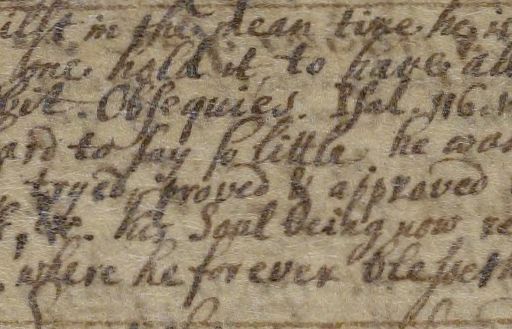 in the mean time he is
one hold it to have all
Obsequies. Psal. 116.
to say so little he was
tryed, proved & approved
&c. his Soul being now re
where he forever blesseth